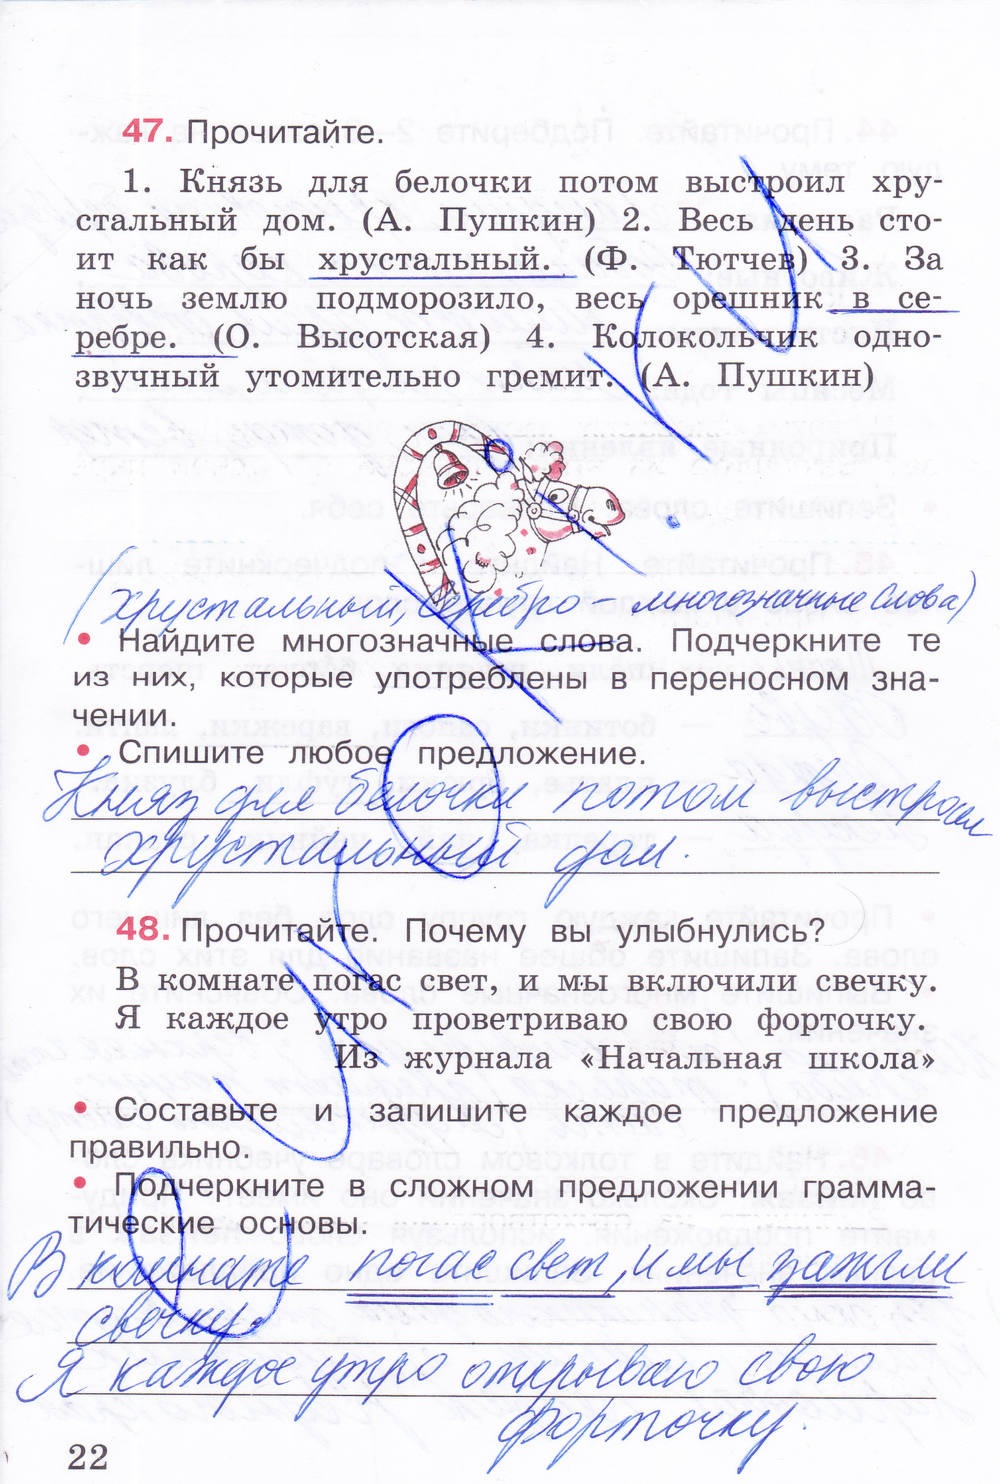 47. Прочитайте.
1. Князь для белочки потом выстроил хру-
стальный дом. (А. Пушкин) 2. Весь день сто-
ит как бы хрустальный. (Ф. Тютчев) 3. За
ночь землю подморозило, весь орешник в се-
ребре. (О. Высотская) 4. Колокольчик одно-
звучный утомительно гремит. (А. Пушкин)
(хрустальный, серебро - многозначные слова)
• Найдите многозначные слова. Подчеркните те
из них, которые употреблены в переносном зна-
чении.
• Спишите любое предложение.
Княз для белочки потом выстроил
хрустальный дом.
48. Прочитайте. Почему вы улыбнулись?
В комнате погас свет, и мы включили свечку.
Я каждое утро проветриваю свою форточку.
Из журнала «Начальная школа»
• Составьте и запишите каждое предложение
правильно.
• Подчеркните в сложном предложении грамма-
тические основы.
В комнате погас свет, и мы зажгли
свечку.
Я каждое утро открываю свою
форточку.
22